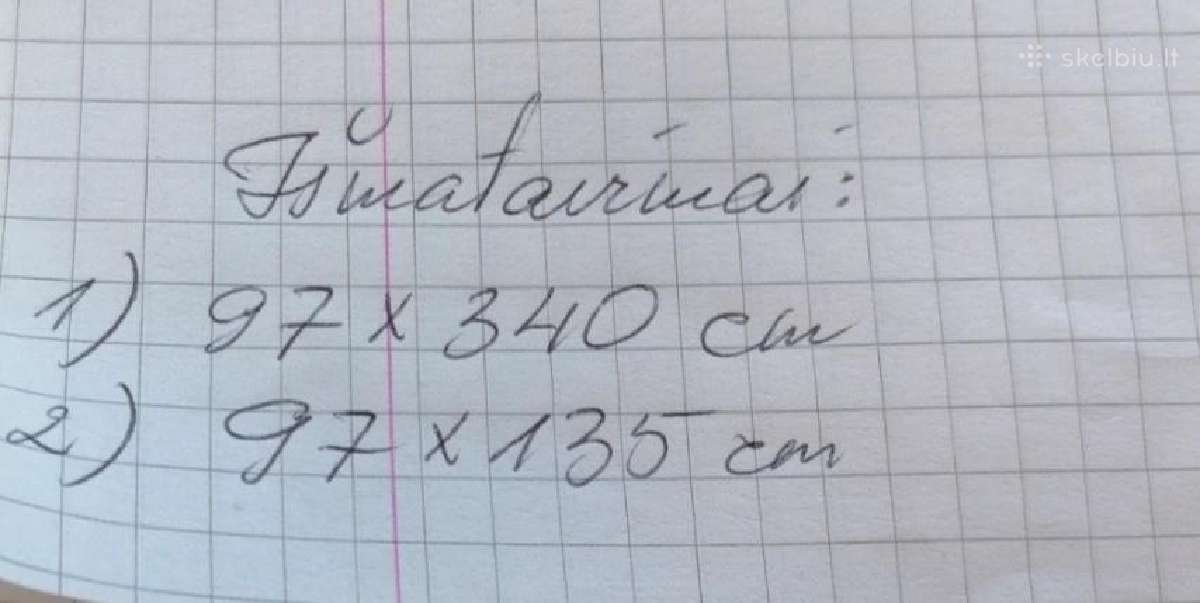 skelbiu.lt
Išmatavimai:
1) 97 x 340 cm
2) 97 x 135 cm